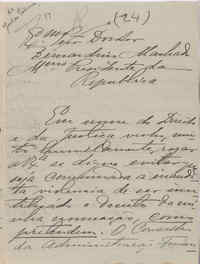 (24)
Exmo Snr Doutor
Bernardino Machado
Presidente da
Republica
Em nome do Direito
e da Justiça venho, mui
humildemente, rogar
a V. Exa se digne evitar
seja consumada a inaudi
ta violencia de ser inu
tilisado o decreto da mi
nha nomeação, como
pretendem. O Conselho
da Administração